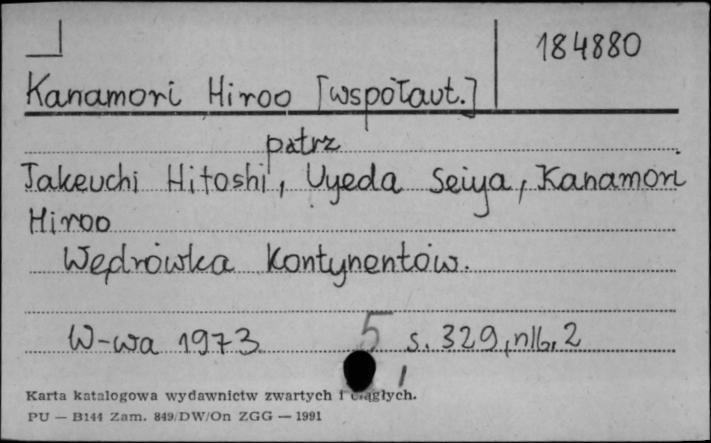 184880
Kanamori Hiroo [współaut.]
patrz
Takeuchi Hitoshi, Uyeda Seiya, Kanamori
Hiroo
Wędrówka kontynentów.
W-wa 1973 5 s. 329, nlb, 2
Karta katalogowa wydawnictw zwartych i ciągłych.
PU — B144 Zam. 849/DW/On ZGG — 1991